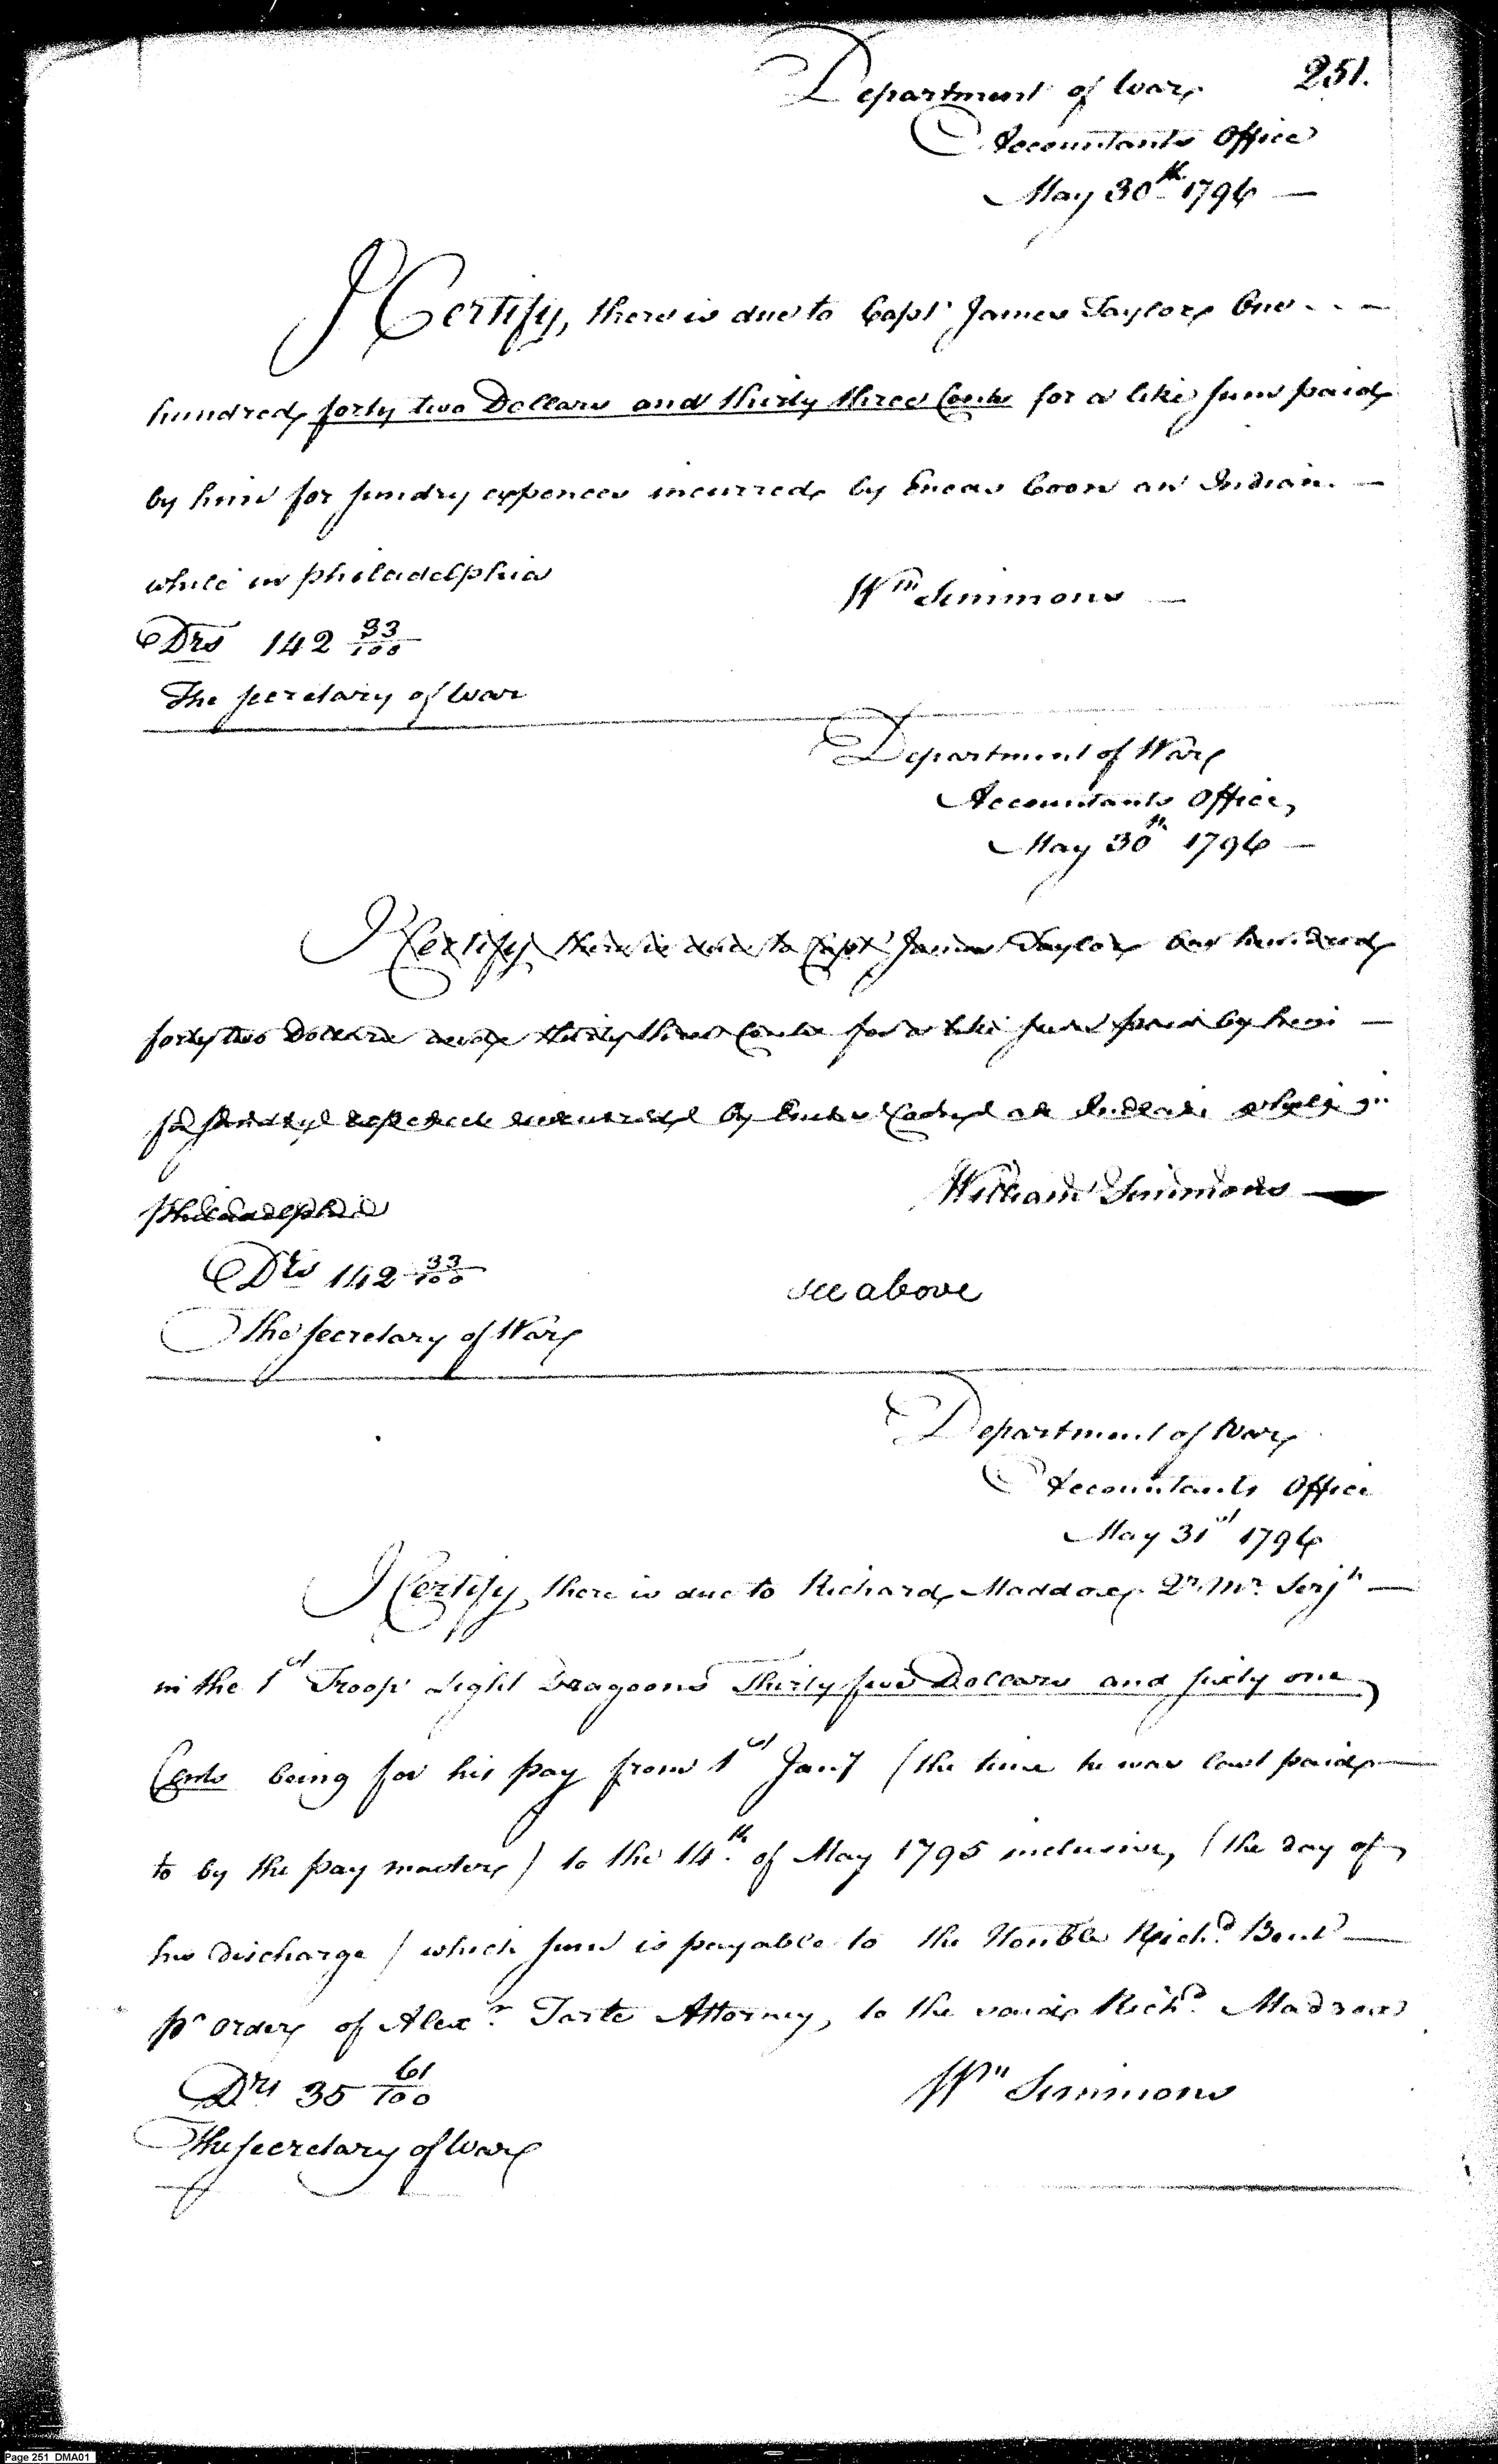 251.
Department of War
Accountants Office
May 30th 1796 —
I Certify, there is due to Capt James Taylor One - - -
hundred forty two Dollars and thirty three Cents for a like sum paid
by him for sundry expences incurred by Eneas Coon an Indian. —
while in philadelphia
Wm Simmons —
Drs 142 33/100
The secretary of War
Department of War
Accountants Office,
May 30th 1796 —
I Certify there is due to Capt James Taylor One hundred
forty two Dollars and thirty three Cents for a like sum paid by him —
for sundry expences incurred by an Indian while in
Philadelphia
William Simmons —
Drs 142 33/100
see above
The secretary of War
Department of War
Accountants Office
May 31st 1796
I Certify, there is due to Richard Maddox Qr. Mr. Serjt —
in the 1st Troop Light Dragoons Thirty five Dollars and sixty one
Cents being for his pay from 1st Jany (the time he was last paid —
to by the pay master) to the 14th of May 1795 inclusive, (the day of
his discharge) which sum is payable to the Honble Richd. Bent —
pr order of Alexr. Tarte Attorney, to the said Richd. Madrox
Drs 35 61/100
Wm Simmons
The secretary of War
Page 251 DMA01